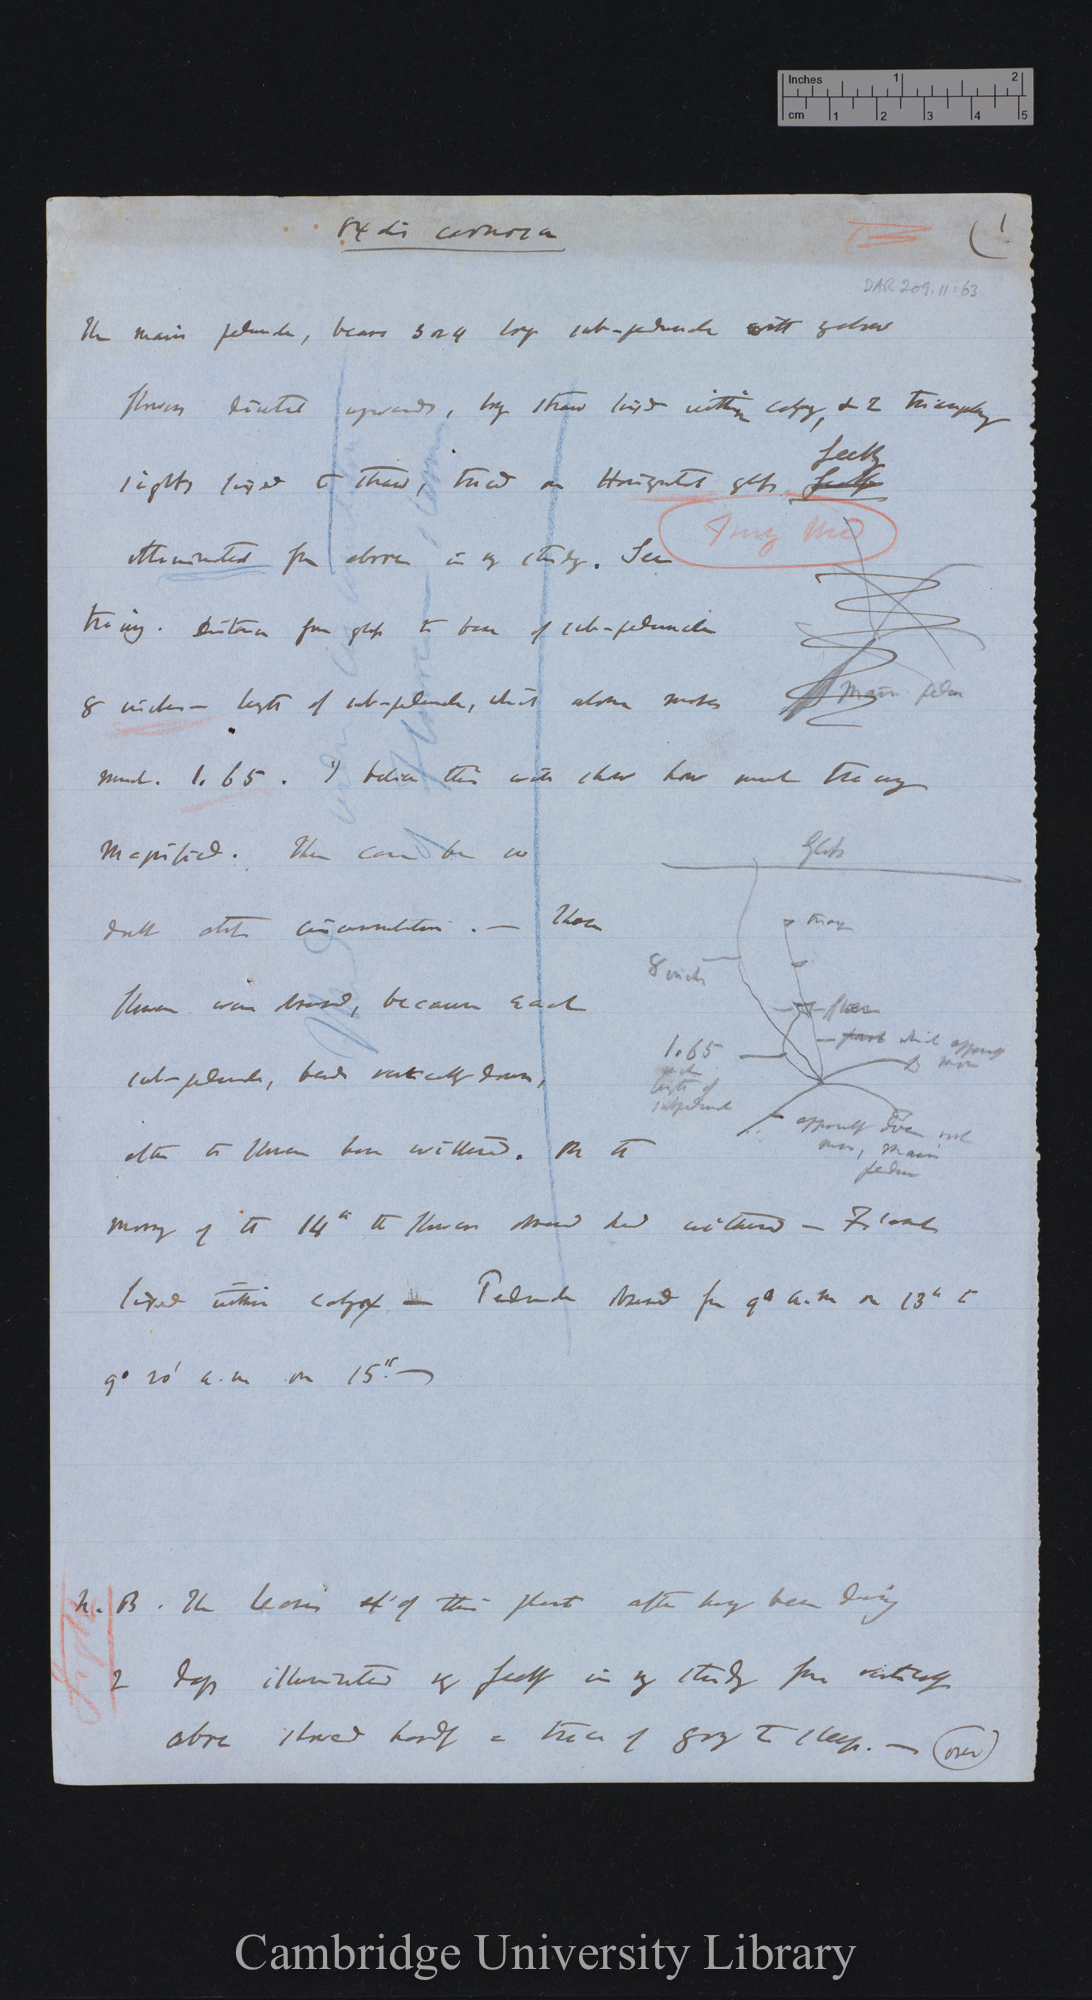 Inches 1 2
cm 1 2 3 4 5
Oxalis carnosa
(1
DAR 209.11:63
The main peduncle, bears 3 or 4 long sub-peduncles with yellow
flowers directed upwards, long straw fixed within calyx, & 2 triangular
sights fixed to straw, traced on Horizontal glass feebly
illuminated from above in my study. See
tracing. Distance from glass to base of sub-peduncle
8 inches — length of sub-peduncle, which alone moves
much. 1.65. I believe this will show how much tracing
magnified. There can be no
doubt about circumnutation. — These
flowers were traced, because each
sub-peduncle, bends vertically down,
after the flowers have withered. On the
morning of the 14th the flowers traced had withered — Filament
fixed within calyx — Peduncle traced from 9° a.m on 13th to
9° 20' a.m on 15th —
Main pedun
Glass
8 inches
flower
part which apparently
moves
1.65
length of
subpeduncle
apparently does not
move, main
pedun
of flower-stem
N.B. The leaves of this plant after having been during
2 days illuminated feebly in my study from vertically
above showed hardly a trace of going to sleep. — (over)
Cambridge University Library